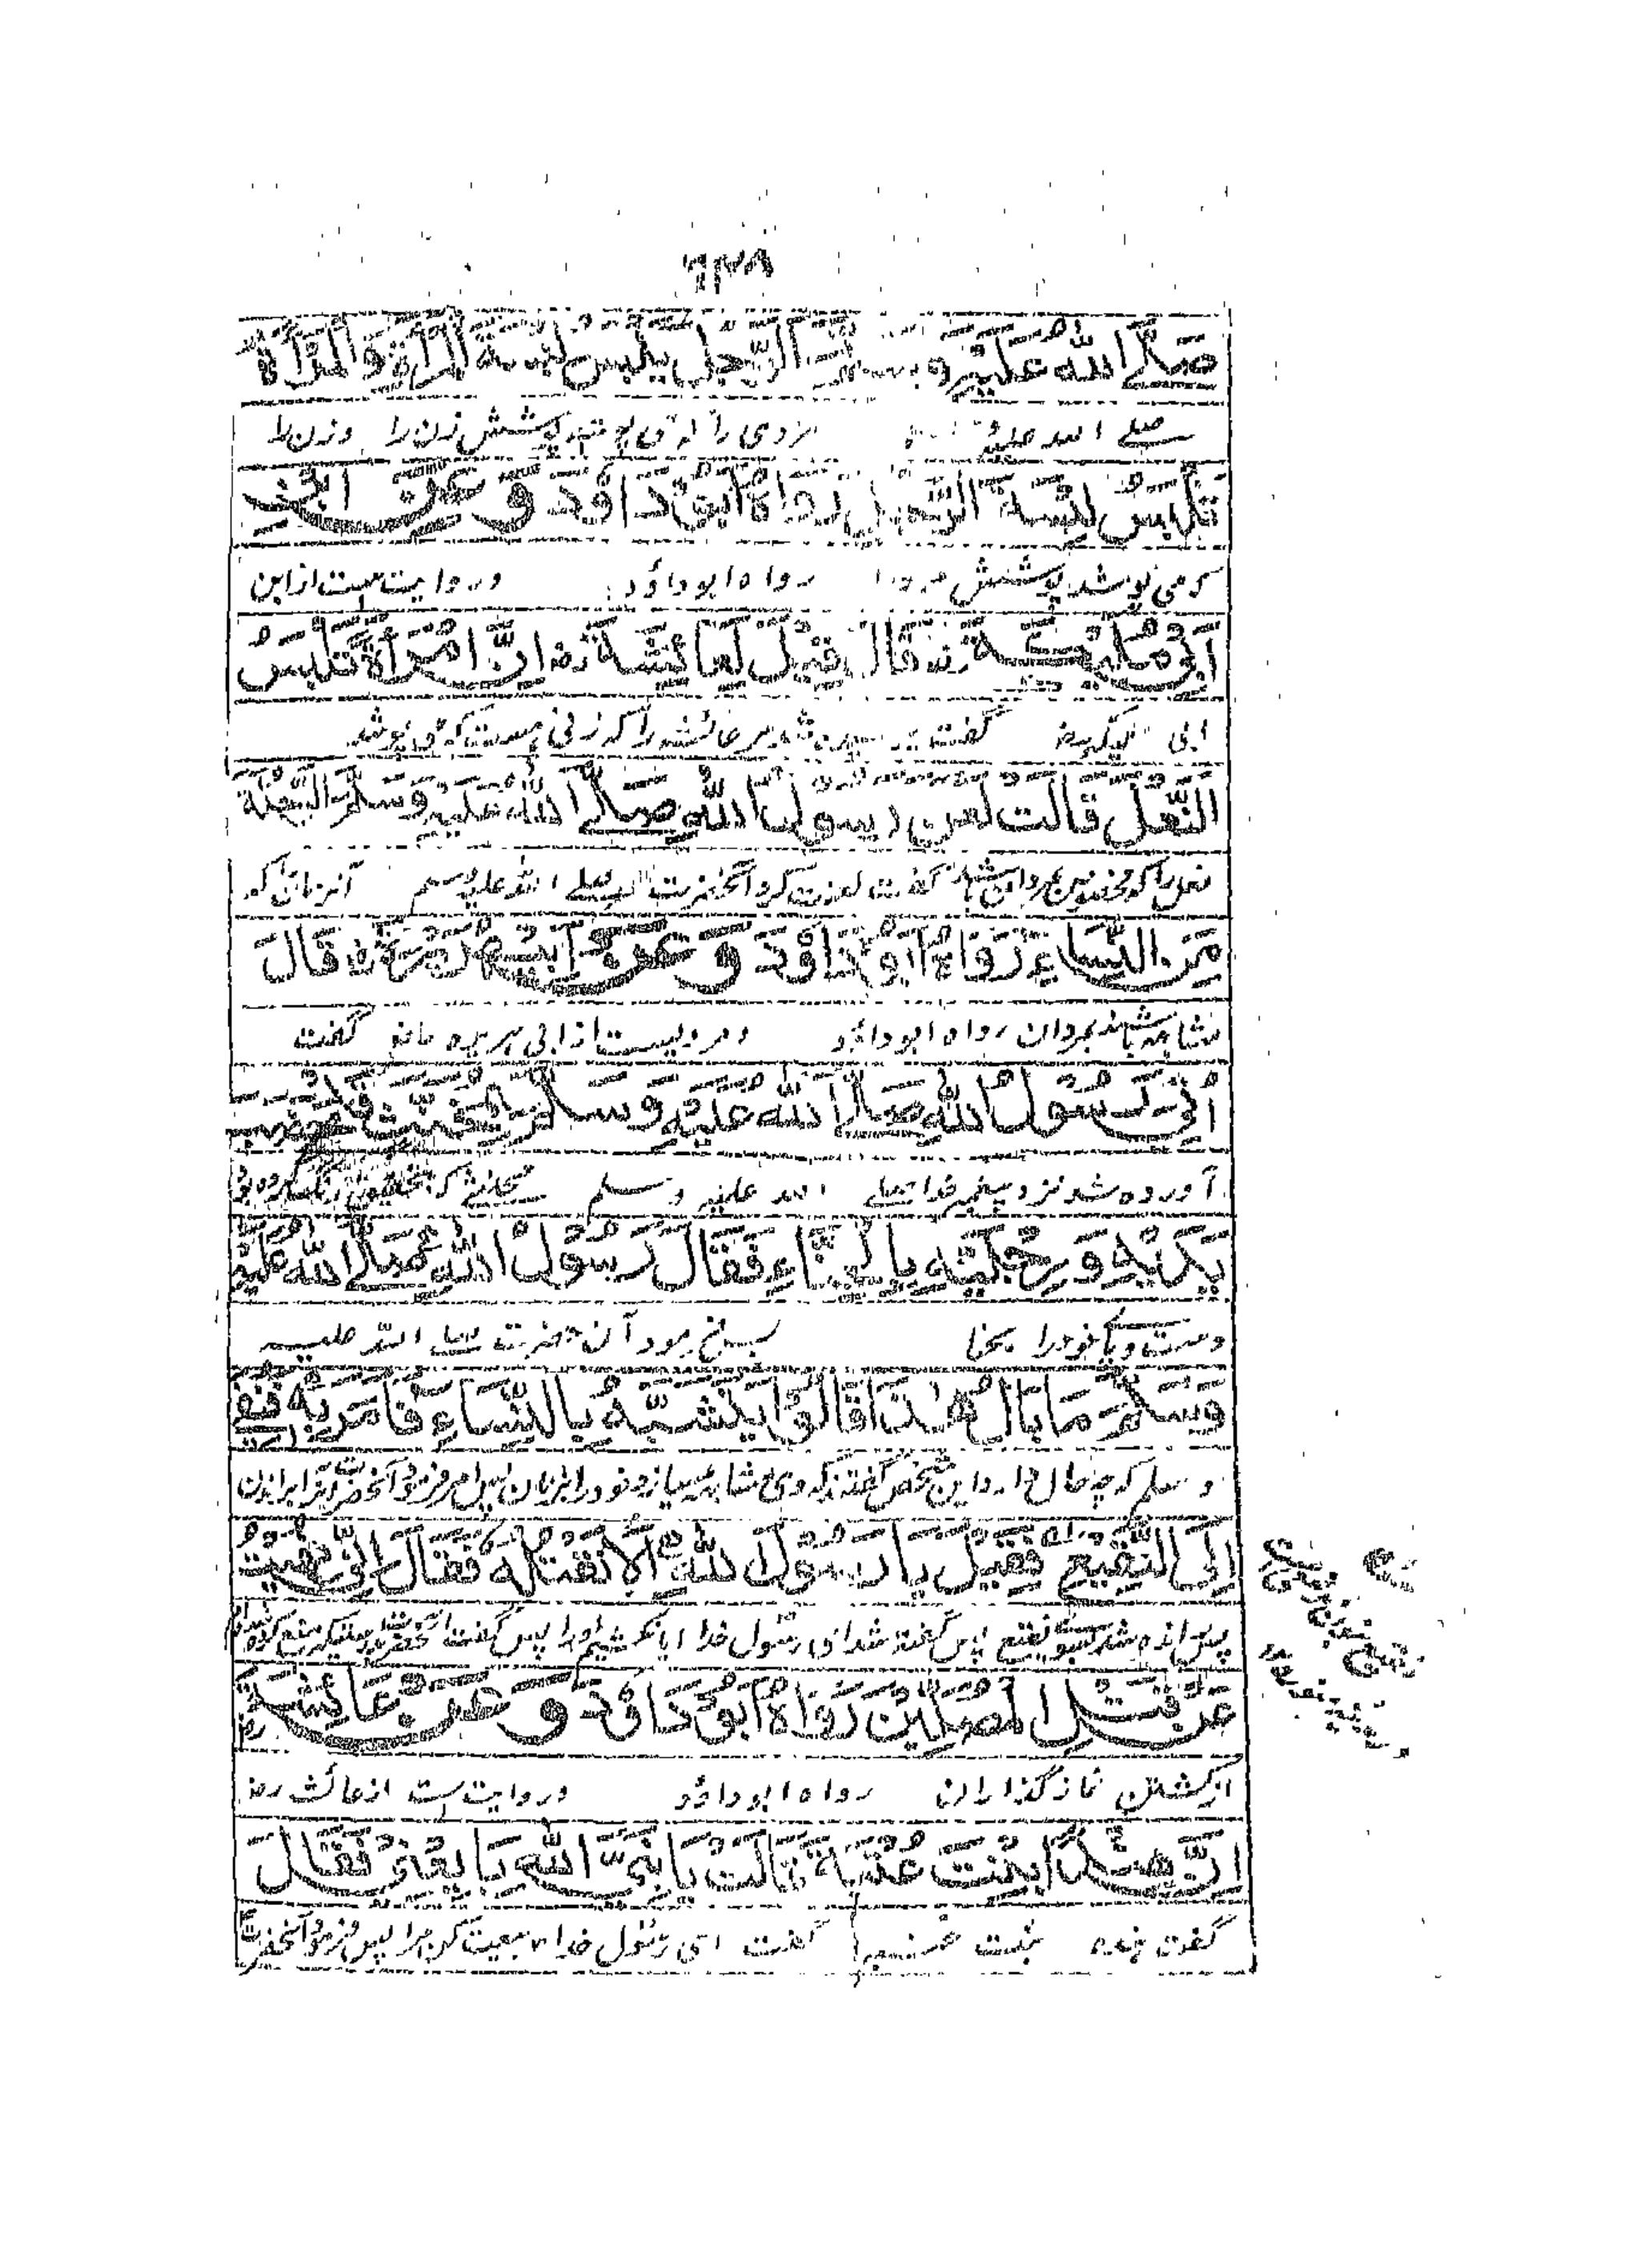 ٦٣٨
صَلَّى اللهُ عَلَيْهِ وَسَلَّمَ الرَّجُلَ يَلْبَسُ لِبْسَةَ الْمَرْأَةِ وَالْمَرْأَةَ
صلے الله علیه مردی را که می پوشد پوشش زن را و زن را
تَلْبَسُ لِبْسَةَ الرَّجُلِ رَوَاهُ أَبُو دَاوُدَ وَعَنِ ابْنِ
که می پوشد پوشش مرد را رواه ابو داؤد وروایت ست از ابن
أَبِي مُلَيْكَةَ رض قَالَ قِيْلَ لِعَائِشَةَ رض إِنَّ امْرَأَةً تَلْبَسُ
ابی ملیکه رض گفت مر عائشه را که زنی هست که می پوشد
النَّعْلَ قَالَتْ لَعَنَ رَسُوْلُ اللهِ صَلَّى اللهُ عَلَيْهِ وَسَلَّمَ الرَّجُلَةَ
نعل را که گفت لعنت کرد آنحضرت صلے الله علیه وسلم آنزنان که
مِنَ النِّسَاءِ رَوَاهُ أَبُو دَاوُدَ وَعَنْ أَبِي هُرَيْرَةَ رض قَالَ
مشابه باشند بمردان رواه ابو داؤد ومرویست از ابی هریره گفت
أُتِيَ رَسُوْلُ اللهِ صَلَّى اللهُ عَلَيْهِ وَسَلَّمَ بِمُخَنَّثٍ قَدْ خَضَبَ
آورده شد نزد پیغمبر خدا صلے الله علیه وسلم مخنثے که
يَدَيْهِ وَرِجْلَيْهِ بِالْحِنَّاءِ فَقَالَ رَسُوْلُ اللهِ صَلَّى اللهُ عَلَيْهِ
دست و پا خود را بحنا پس فرمود آن حضرت صلے الله علیه
وَسَلَّمَ مَا بَالُ هٰذَا قَالُوْا يَتَشَبَّهُ بِالنِّسَاءِ فَأَمَرَ بِهِ فَنُفِيَ
وسلم که چه حال دارد این شخص گفتند که وی مشابه میسازد خود را بزنان پس امر فرمود آنحضرت
إِلَى النَّقِيْعِ فَقِيْلَ يَا رَسُوْلَ اللهِ أَلَا نَقْتُلُهُ فَقَالَ إِنِّي نُهِيْتُ
پس رانده شد بسوی نقیع پس گفته شد ای رسول خدا آیا نکشیم او را پس گفت آنحضرت
عَنْ قَتْلِ الْمُصَلِّيْنَ رَوَاهُ أَبُو دَاوُدَ وَعَنْ عَائِشَةَ رض
از کشتن نماز گذاران رواه ابو داؤد وروایت ست از عائشه رض
أَنَّ هِنْدًا بِنْتَ عُتْبَةَ قَالَتْ يَا نَبِيَّ اللهِ بَايِعْنِي فَقَالَ
گفت هنده بنت عتبه گفت ای رسول خدا بیعت کن مرا پس فرمود آنحضرت